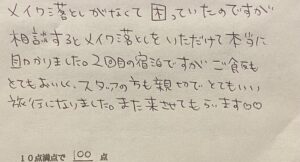 メイク落としがなくて困っていたのですが
相談するとメイク落としをいただけて本当に
助かりました。2回目の宿泊ですがご飯も
とてもおいしく、スタッフの方も親切でとてもいい
旅行になりました。また来させてもらいます♡♡
10点満点で 100 点